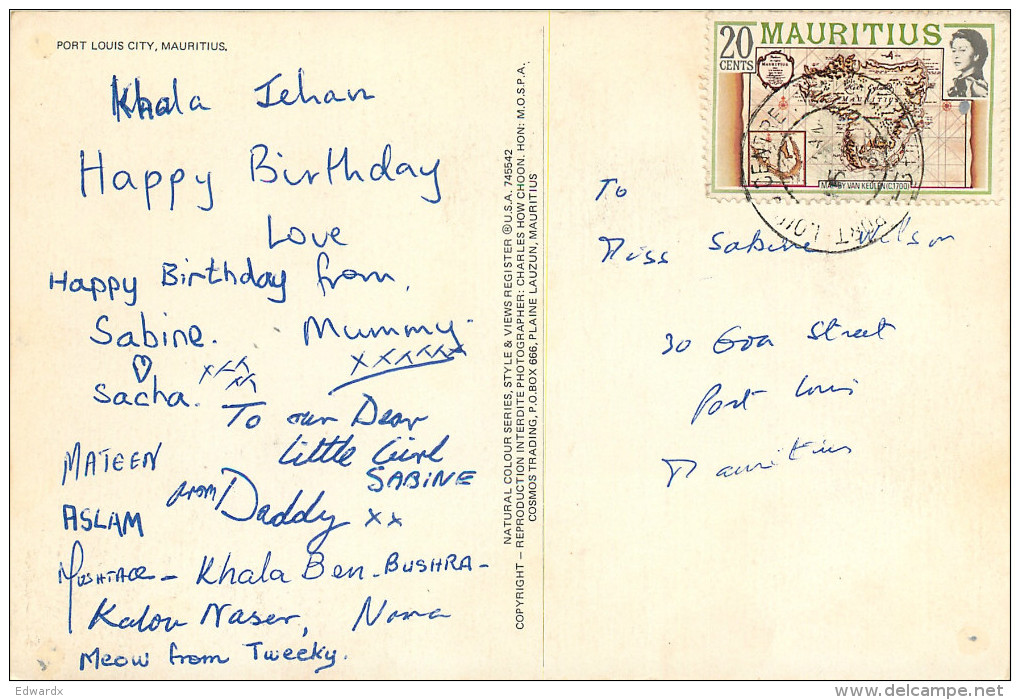 PORT LOUIS CITY, MAURITIUS.
Khala Jehan
Happy Birthday
Love
Happy Birthday from
Sabine. Mummy.
xxxxxx
xxx
xx
Sacha.
To our Dear
Little Girl
SABINE
MATEEN
from Daddy xx
ASLAM
MUSHTAQ - Khala Ben - BUSHRA -
Kalou Naser, Nana
Meow from Tweeky.
NATURAL COLOUR SERIES, STYLE & VIEWS REGISTER ® U.S.A. 745542
COPYRIGHT – REPRODUCTION INTERDITE PHOTOGRAPHER: CHARLES HOW CHOON. HON: M.O.S.P.A.
COSMOS TRADING, P.O.BOX 666, PLAINE LAUZUN, MAURITIUS
20 CENTS MAURITIUS
MAURITIUS
MAP BY VAN KEULEN (C.1700)
CENTRE
PORT LOUIS
To
Miss Sabine Wilson
30 Goa Street
Port Louis
Mauritius
Edwardx
www.delcampe.net